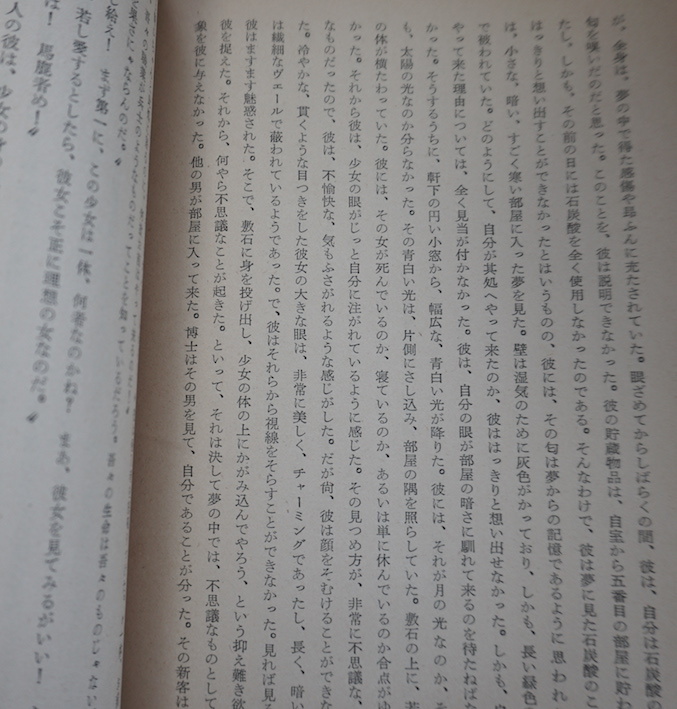 が、全身は、夢の中で得た感傷や昂ふんに充たされていた。眼ざめてからしばらくの間、彼は、自分は石炭酸の
匂を嗅いだのだと思った。このことを、彼は説明できなかった。彼の貯蔵物品は、自宅から五番目の部屋に貯わ
たし、しかも、その前の日には石炭酸を全く使用しなかったのである。そんなわけで、彼は夢に見た石炭酸のこ
はっきりと想い出すことができなかったとはいうものの、彼には、その匂は夢からの記憶であるように思われ
は、小さな、暗い、すごく寒い部屋に入った夢を見た。壁は湿気のために灰色がかっており、しかも、長い緑色
で被われていた。どのようにして、自分が其処へやって来たのか、彼ははっきりと想い出せなかった。しかも、
やって来た理由については、全く見当が付かなかった。彼は、自分の眼が部屋の暗さに馴れて来るのを待たねばな
かった。そうするうちに、軒下の円い小窓から、幅広な、青白い光が降りた。彼には、それが月の光なのか、そ
も、太陽の光なのか分らなかった。その青白い光は、片側にさし込み、部屋の隅を照らしていた。敷石の上に、若
の体が横たわっていた。彼には、その女が死んでいるのか、寝ているのか、あるいは単に休んでいるのか合点がゆ
かった。それから彼は、少女の眼がじっと自分に注がれているように感じた。その見つめ方が、非常に不思議な、
なものだったので、彼は、不愉快な、気もふさがれるような感じがした。だが尚、彼は顔をそむけることができな
た。冷やかな、貫くような目つきをした彼女の大きな眼は、非常に美しく、チャーミングであったし、長く、暗い
は繊細なヴェールで蔽われているようであった。で、彼はそれらから視線をそらすことができなかった。見れば見る
彼はますます魅惑された。そこで、敷石に身を投げ出し、少女の体の上にかがみ込んでやろう、という抑え難き欲
彼を捉えた。それから、何やら不思議なことが起きた。といって、それは決して夢の中では、不思議なものとして
象を彼に与えなかった。他の男が部屋に入って来た。博士はその男を見て、自分であることが分った。その新客は
ってことを知っているだろう。吾々の生命は吾々のもの
ならんのだ。〟
し給え！　まず第一に、この少女は一体、何者なのかね？　まあ、彼女を見てみるがいい！
若し愛するとしたら、彼女こそ正に理想の女なのだ。〟
は！　馬鹿者め！〟
人の彼は、少女の